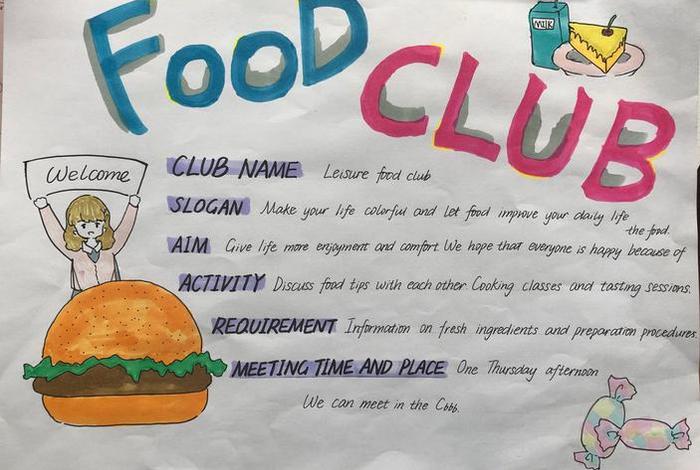 FOOD
CLUB
MILK
Welcome
CLUB NAME Leisure food club
SLOGAN Make your life colorful and let food improve your daily life
the food.
AIM Give life more enjoyment and comfort. We hope that everyone is happy because of
ACTIVITY Discuss food tips with each other. Cooking classes and tasting sessions.
REQUIREMENT Information on fresh ingredients and preparation procedures.
MEETING TIME AND PLACE One Thursday afternoon
We can meet in the